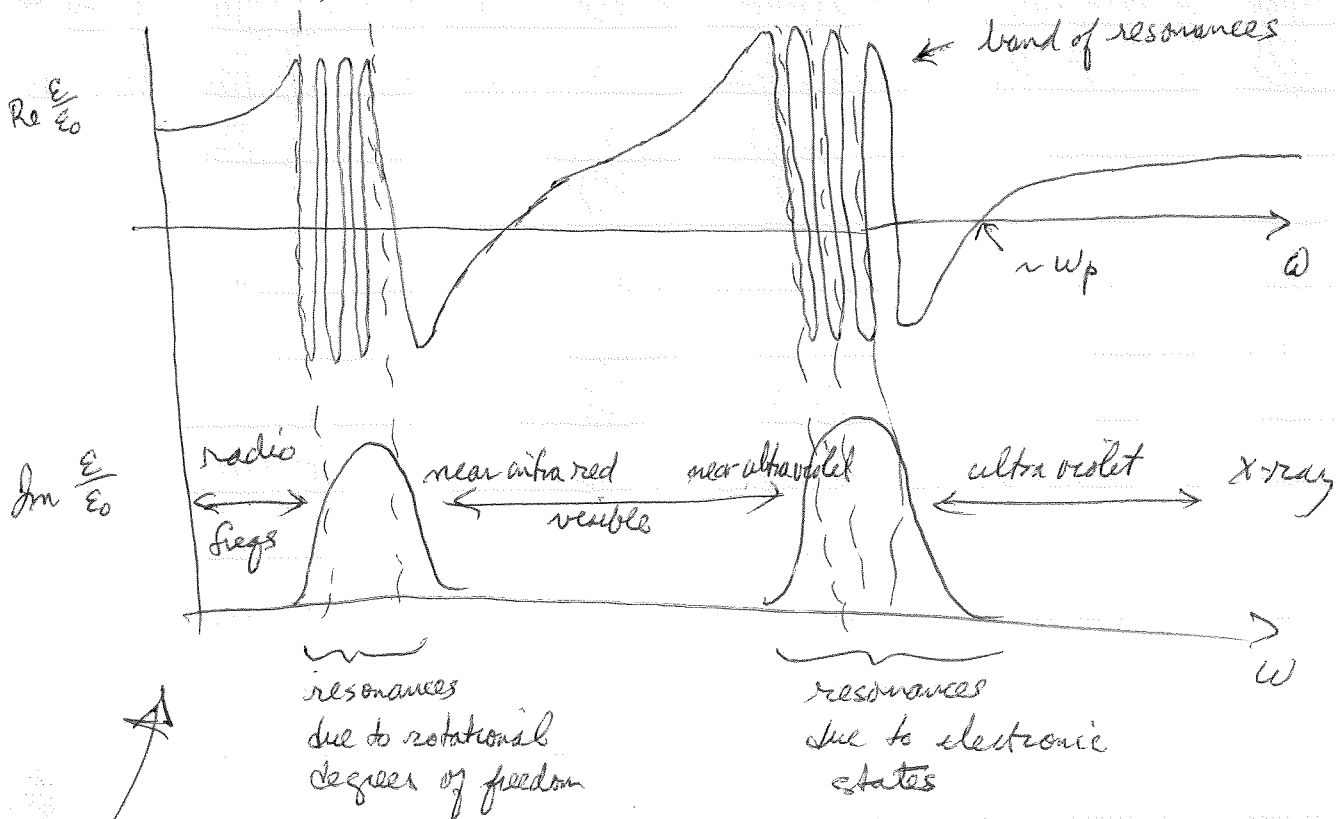 band of resonances
Re ε/ε₀
~ ωp
ω
Im ε/ε₀
radio
freqs
near infra red
visible
near ultraviolet
ultra violet
x-ray
ω
resonances
due to rotational
degrees of freedom
resonances
due to electronic
states